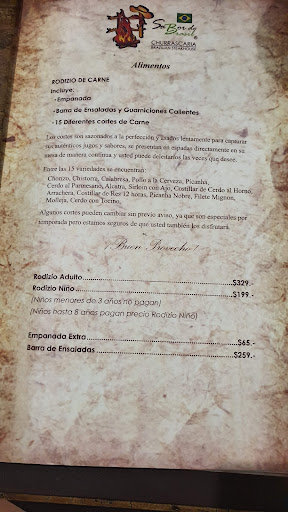 Sabor do
Brasil
CHURRASCARIA
BRAZILIAN STEAKHOUSE
Alimentos
RODIZIO DE CARNE
Incluye:
-Empanada
-Barra de Ensaladas y Guarniciones Calientes
-15 Diferentes cortes de Carne
Los cortes son sazonados a la perfección y asados lentamente para capturar
sus auténticos jugos y sabores, se presentan en espadas directamente en su
mesa de manera continua y usted puede deleitarlos las veces que desee.
Entre las 15 variedades se encuentran:
Chorizo, Chistorra, Calabresa, Pollo a la Cerveza, Picanha,
Cerdo al Parmesano, Alcatra, Sirloin con Ajo, Costillar de Cerdo al Horno,
Arrachera, Costillar de Res 12 horas, Picanha Nobre, Filete Mignon,
Molleja, Cerdo con Tocino.
Algunos cortes pueden cambiar sin previo aviso, ya que son especiales por
temporada pero estamos seguros de que usted también los disfrutará.
¡Buen Provecho!
Rodizio Adulto $329.-
Rodizio Niño $199.-
(Niños menores de 3 años no pagan)
(Niños hasta 8 años pagan precio Rodizio Niño)
Empanada Extra $65.-
Barra de Ensaladas $259.-